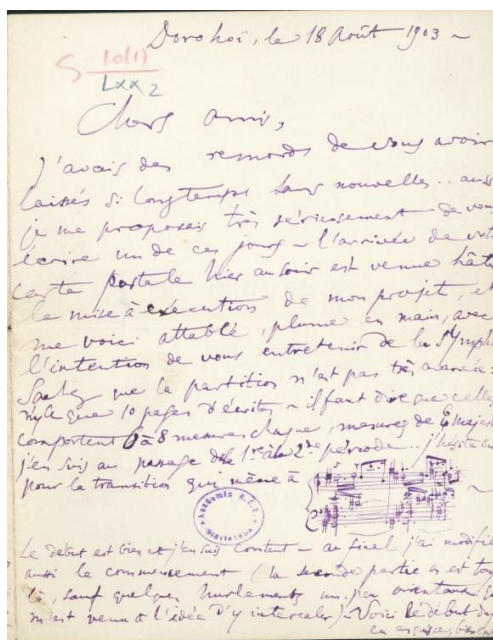 Dorohoï, le 18 Août 1903 ~
S 10(1)
LXX 2
Chers amis,
J'avais des remords de vous avoir
laissés si longtemps sans nouvelles.. aussi
je me proposais très sérieusement de vous
écrire un de ces jours ~ l'arrivée de votre
carte postale hier au soir est venue hâter
la mise à exécution de mon projet, et
me voici attablé, plume en main, avec
l'intention de vous entretenir de la Symph
Sachez que la partition n'est pas très avancée:
n'y a que 10 pages d'écrites ~ il faut dire que celles
comportent 6 à 8 mesures chaque, mesures de
j'en suis au passage de la 1re à la 2de période.. j'hésite en
pour la transition qui mène à
Academia R.P.R.
Le début est bien et j'en suis content ~ au final j'ai modifié
aussi le commencement (la seconde partie en est tou
là, sauf quelques hurlements un peu orientaux qu
m'est venu à l'idée d'y intercaler) ~ Voici le début du
en